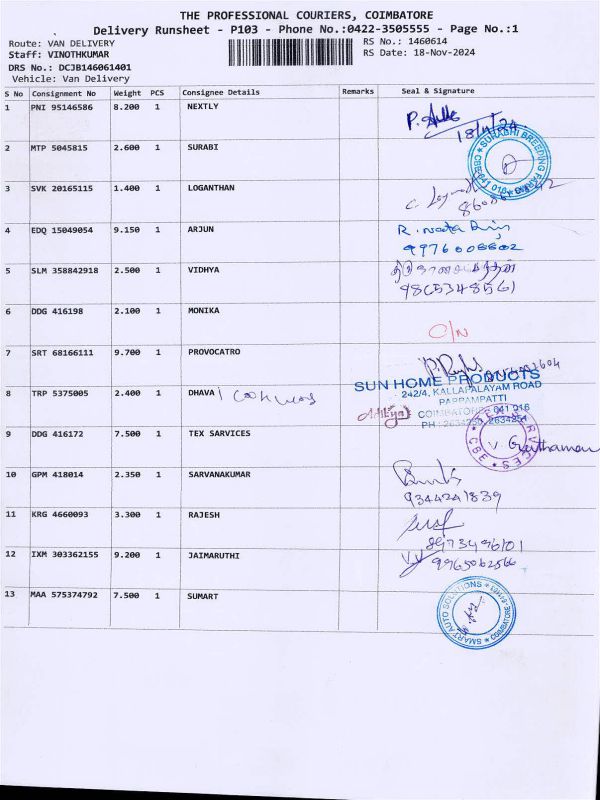 THE PROFESSIONAL COURIERS, COIMBATORE
Delivery Runsheet - P103 - Phone No.:0422-3505555 - Page No.:1
Route: VAN DELIVERY
RS No.: 1460614
Staff: VINOTHKUMAR
RS Date: 18-Nov-2024
DRS No.: DCJB146061401
Vehicle: Van Delivery
S No Consignment No Weight PCS Consignee Details Remarks Seal & Signature
1 PNI 95146586 8.200 1 NEXTLY
18/11/24
2 MTP 5045815 2.600 1 SURABI
SURABHI BREEDING FARMS
CBE-641 016
3 SVK 20165115 1.400 1 LOGANTHAN
4 EDQ 15049054 9.150 1 ARJUN
9976008802
5 SLM 358842918 2.500 1 VIDHYA
9865348561
6 DDG 416198 2.100 1 MONIKA
O/N
7 SRT 68166111 9.700 1 PROVOCATRO
SUN HOME PRODUCTS
242/4, KALLAPALAYAM ROAD
8 TRP 5375005 2.400 1 DHAVA
PAPPAMPATTI
COIMBATORE - 641 016
PH : 2634255, 2634254
9 DDG 416172 7.500 1 TEX SARVICES
CBE
10 GPM 418014 2.350 1 SARVANAKUMAR
9344241839
11 KRG 4660093 3.300 1 RAJESH
12 IXM 303362155 9.200 1 JAIMARUTHI
9965062566
13 MAA 575374792 7.500 1 SUMART
SMART AUTO SOLUTIONS
COIMBATORE